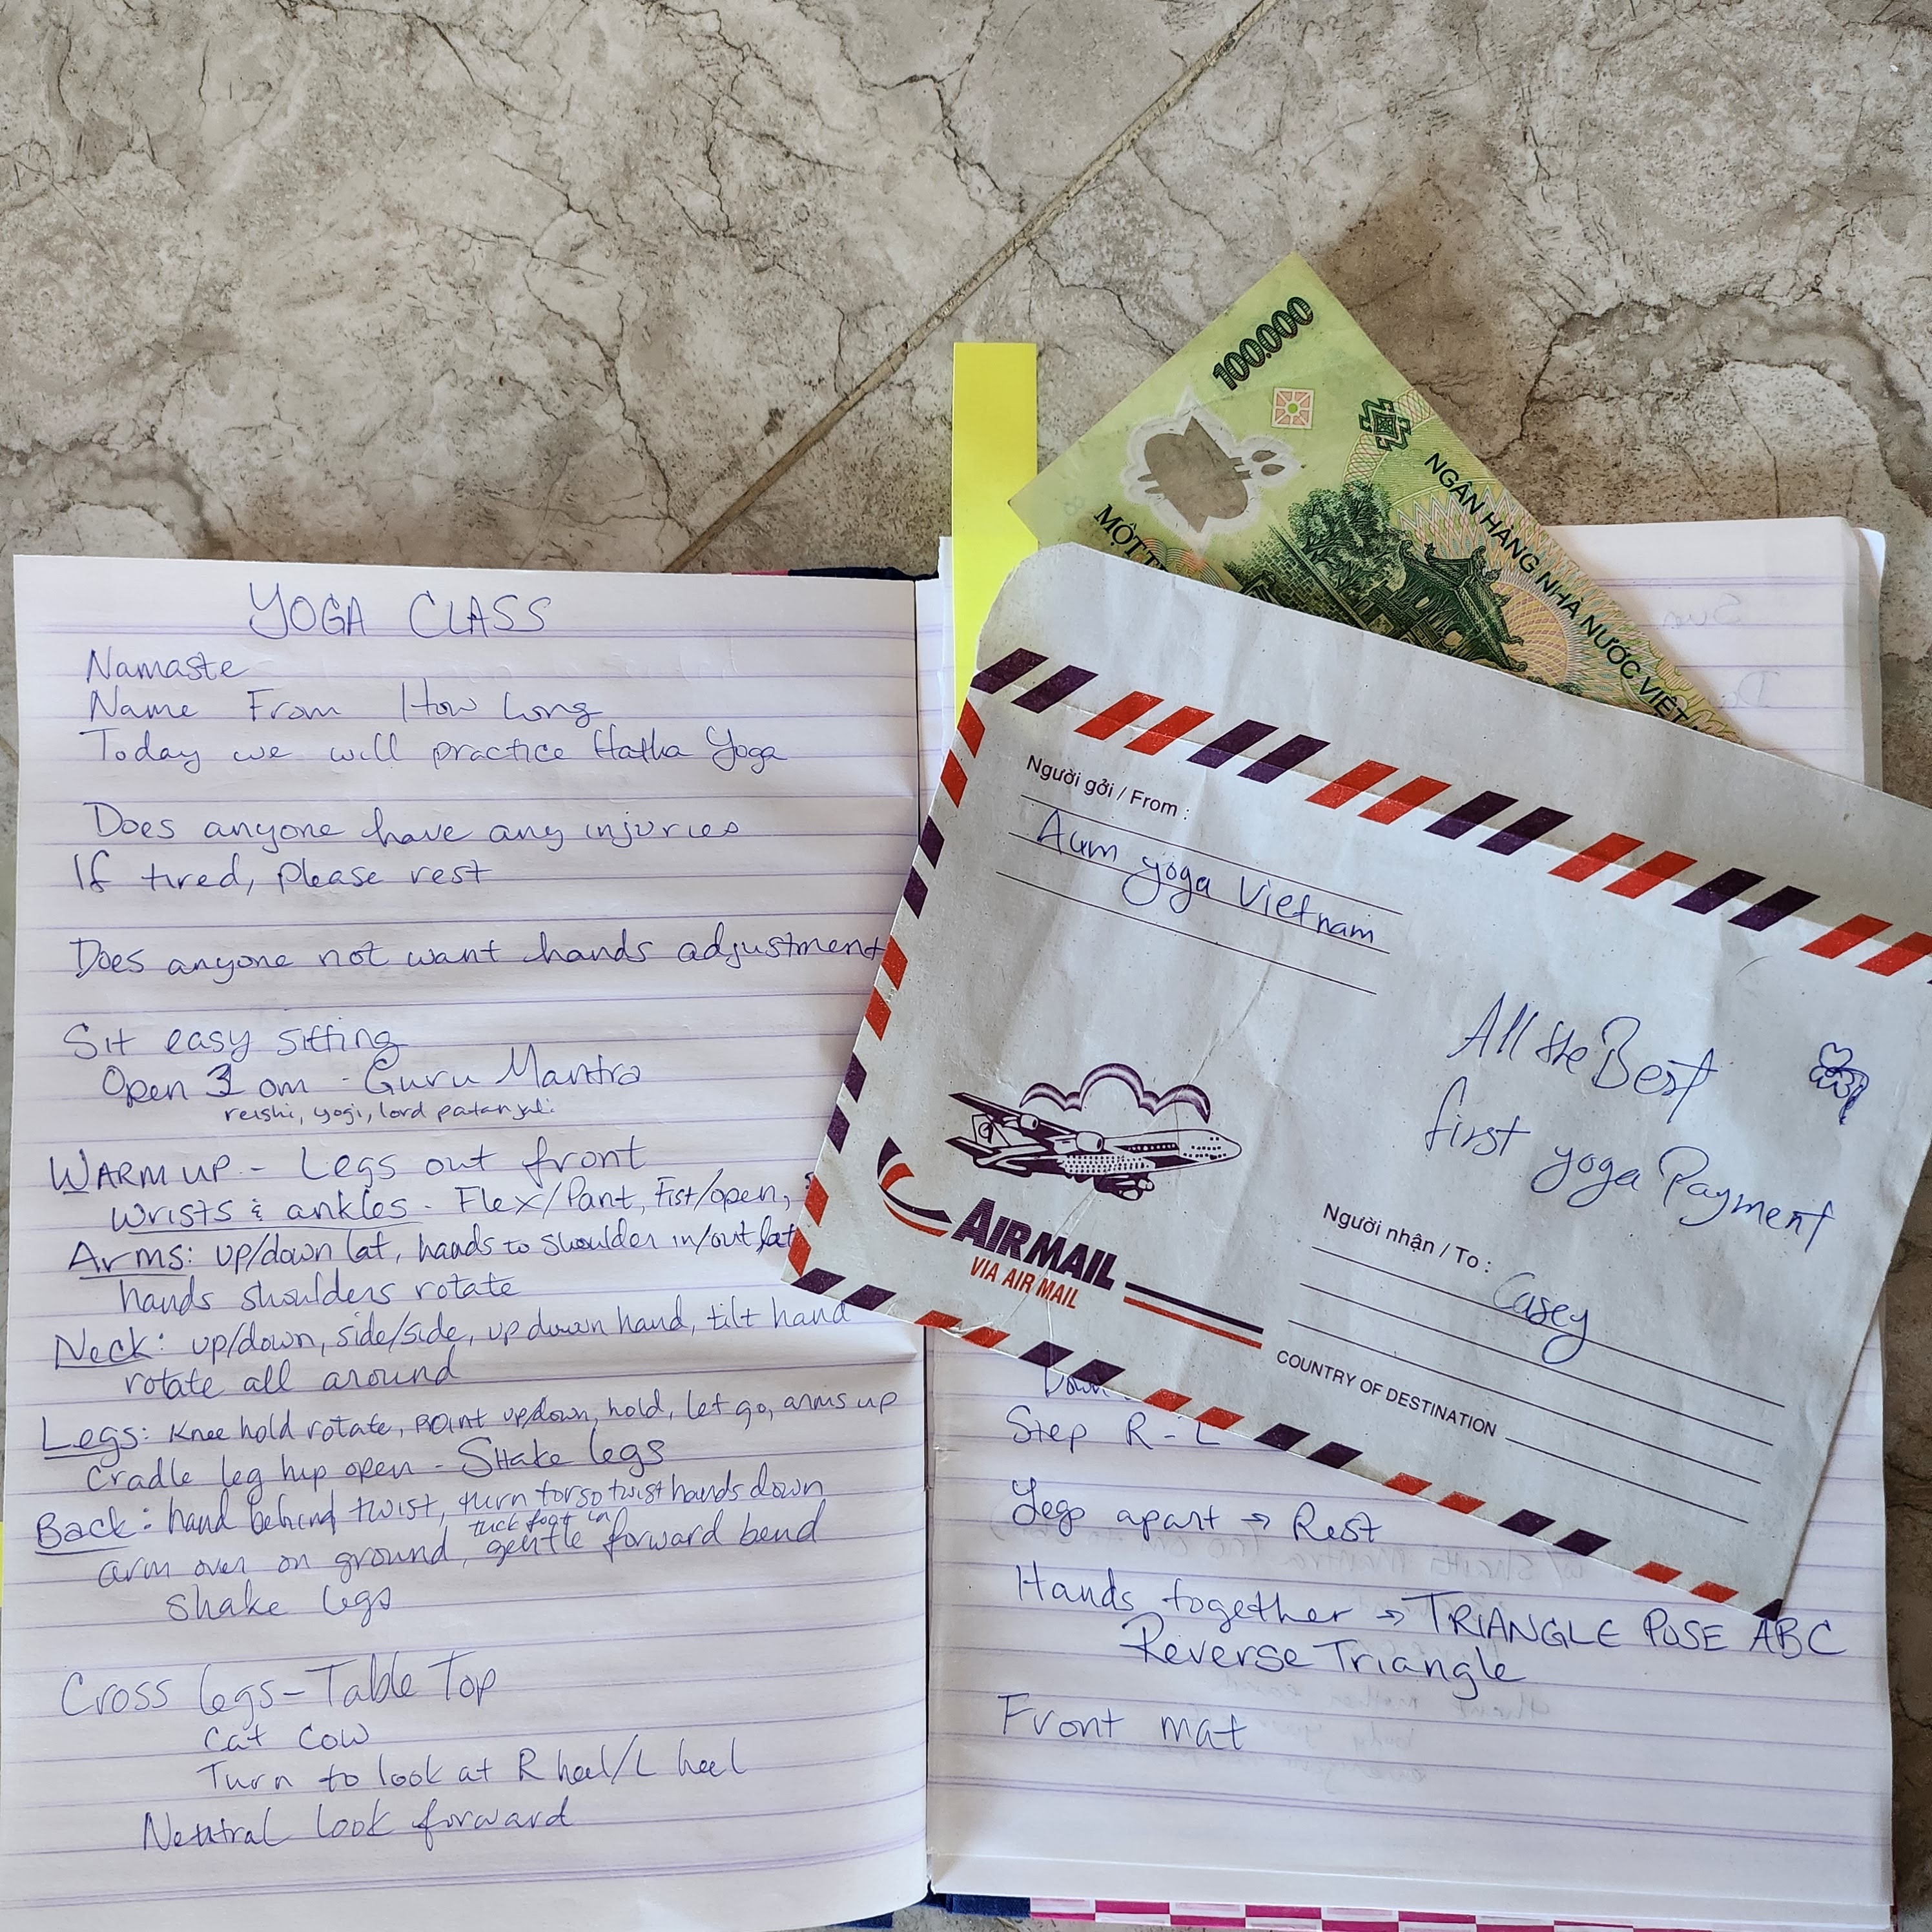 YOGA CLASS
Namaste
Name From How Long
Today we will practice Hatha Yoga
Does anyone have any injuries
If tired, please rest
Does anyone not want hands adjustment
Sit easy sitting
Open 3 om - Guru Mantra
reishi, yogi, lord patanjali
WARM UP - Legs out front
Wrists & ankles - Flex/Point, Fist/open,
Arms: up/down lat, hands to shoulder in/out lat
hands shoulders rotate
Neck: up/down, side/side, up down hand, tilt hand
rotate all around
Legs: Knee hold rotate, point up/down, hold, let go, arms up
Cradle leg hip open - Shake legs
Back: hand behind twist, turn torso twist hands down
tuck foot in
arm over on ground, gentle forward bend
shake legs
Cross legs - Table Top
Cat Cow
Turn to look at R heel/L heel
Neutral look forward
100.000
MỘT
NGÂN HÀNG NHÀ NƯỚC VIỆT
Người gởi / From :
Aum yoga Vietnam
All the Best
first yoga Payment
AIR MAIL
VIA AIR MAIL
Người nhận / To :
Casey
COUNTRY OF DESTINATION
Down
Step R - L
Legs apart → Rest
Hands together → TRIANGLE POSE ABC
Reverse Triangle
Front mat